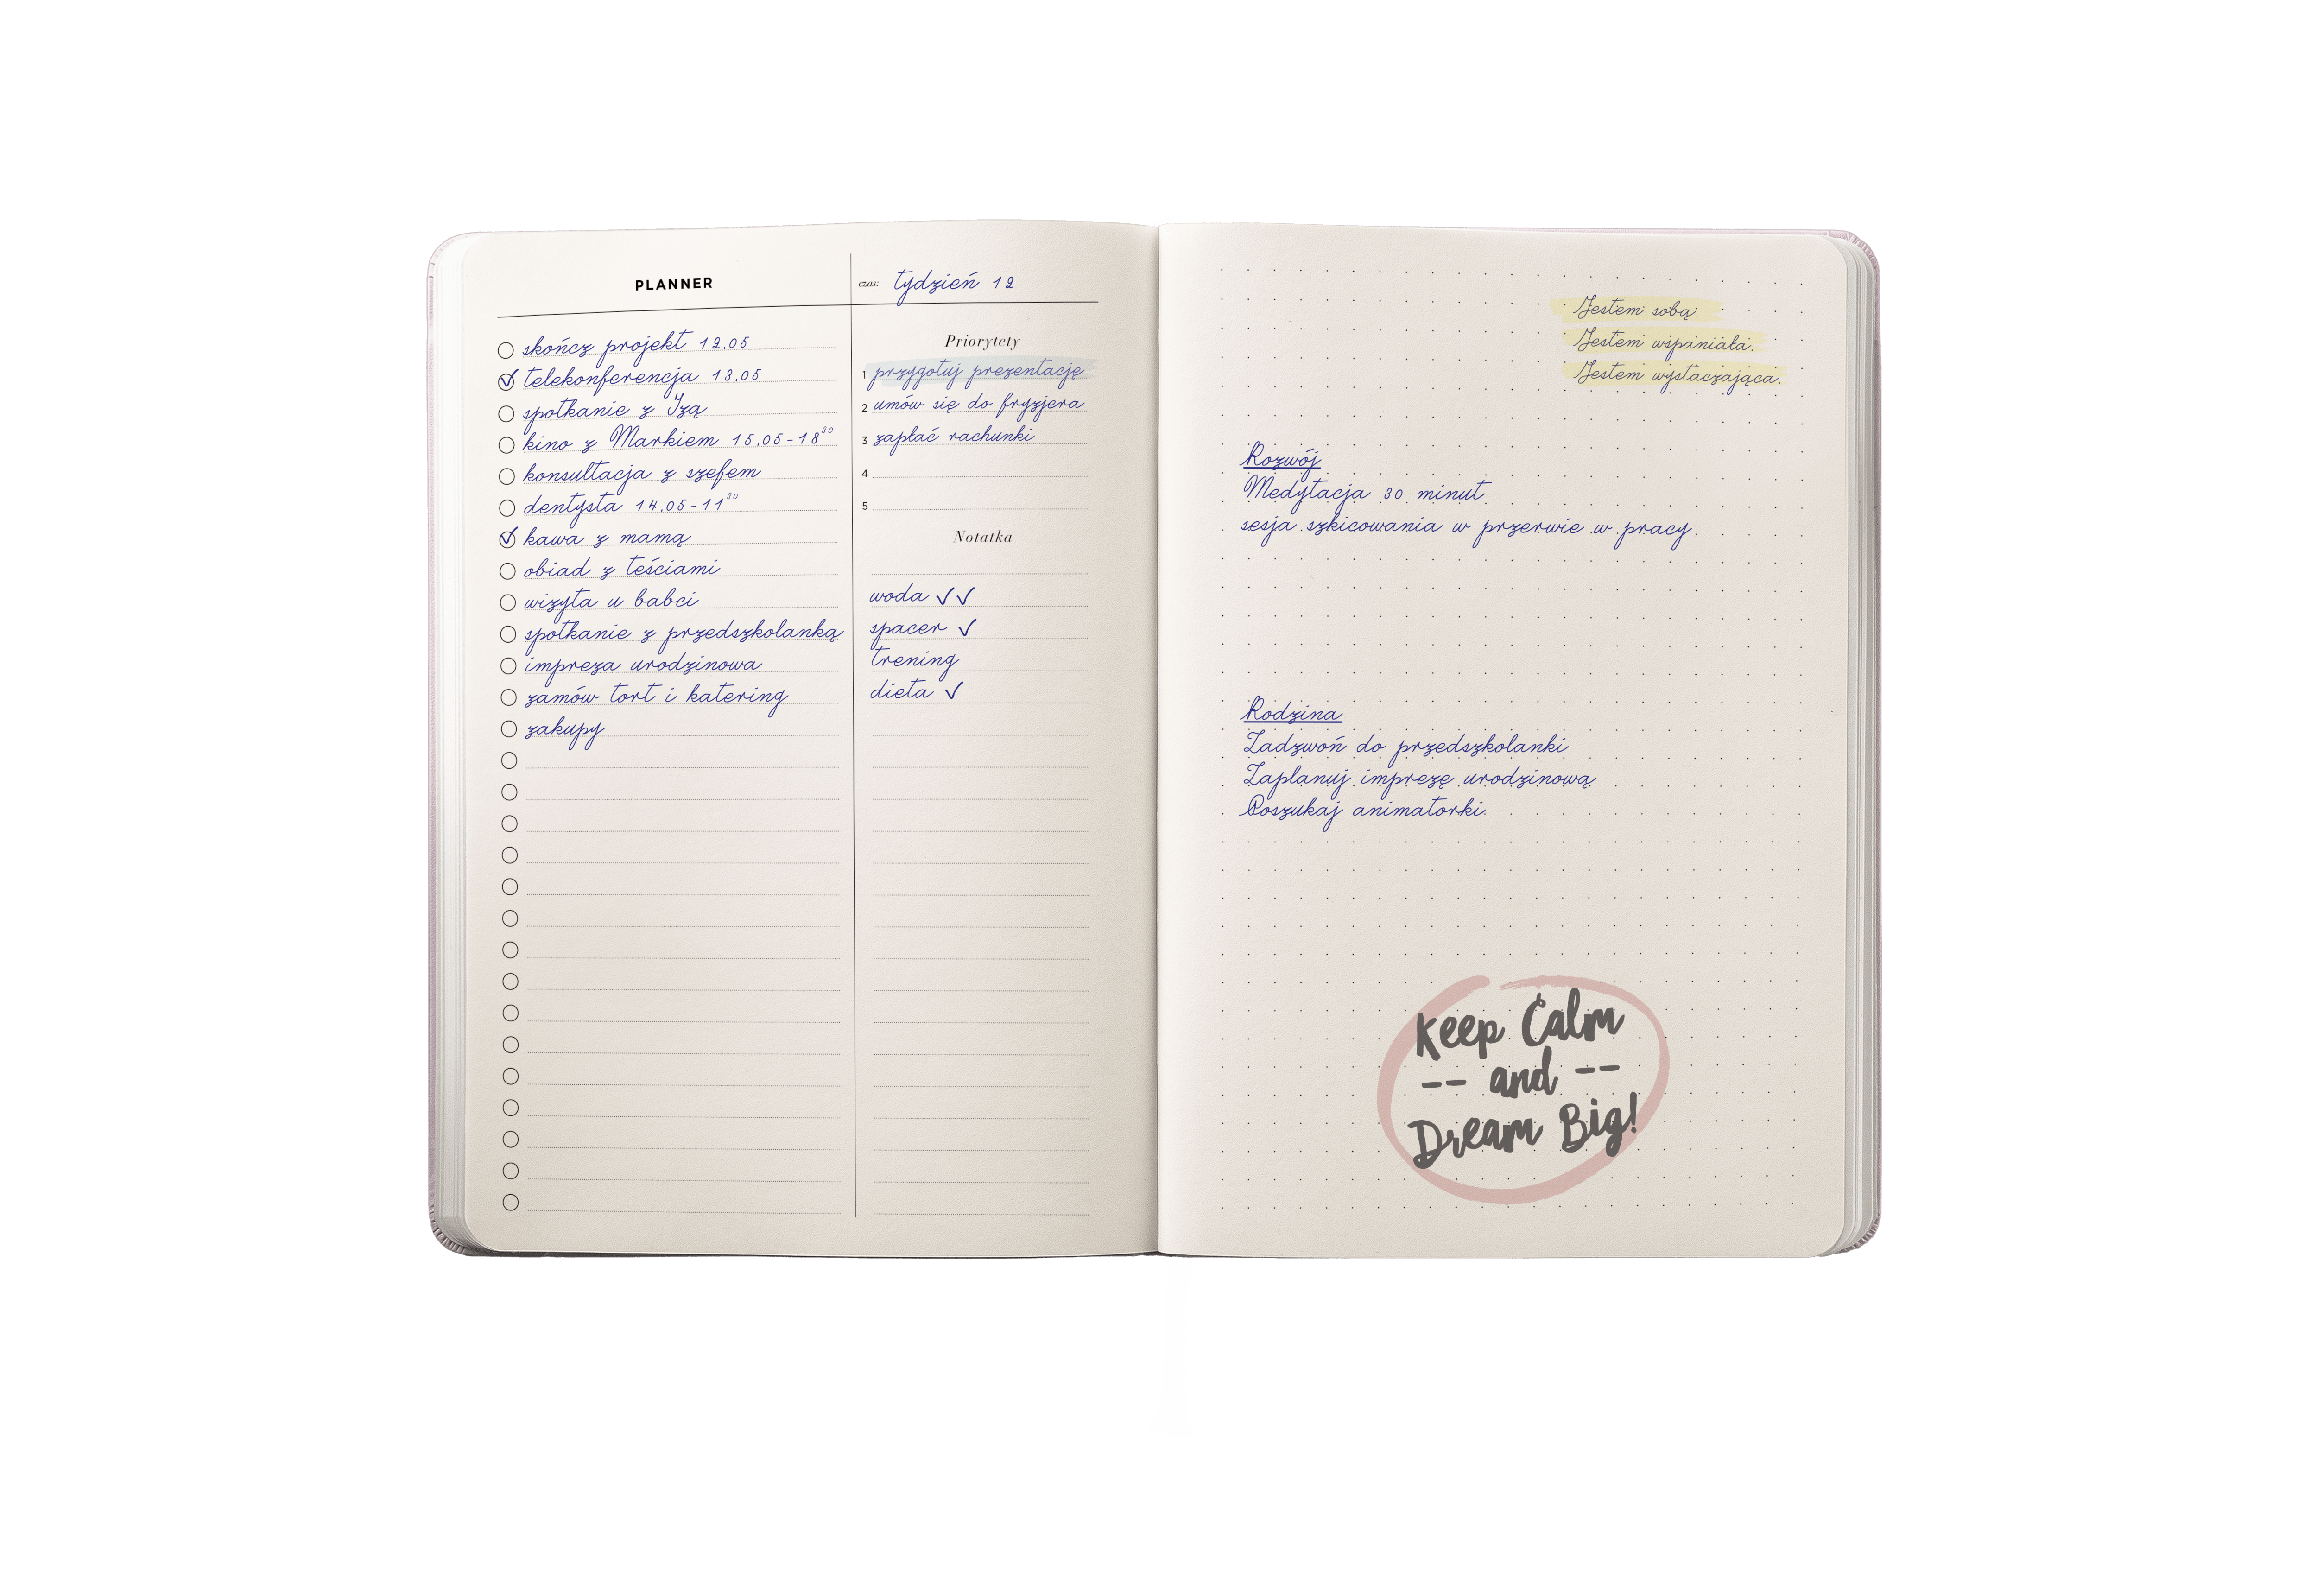 PLANNER
skończ projekt 12.05
telekonferencja 13.05
spotkanie z Izą
kino z Markiem 15.05-18³⁰
konsultacja z szefem
dentysta 14.05-11³⁰
kawa z mamą
obiad z teściami
wizyta u babci
spotkanie z przedszkolanką
impreza urodzinowa
zamów tort i katering
zakupy
czas: tydzień 12
Priorytety
1 przygotuj prezentację
2 umów się do fryzjera
3 zapłać rachunki
4
5
Notatka
woda ✓✓
spacer ✓
trening
dieta ✓
Jestem sobą.
Jestem wspaniała.
Jestem wystaczająca.
Rozwój
Medytacja 30 minut
sesja szkicowania w przerwie w pracy.
Rodzina
Zadzwoń do przedszkolanki
Zaplanuj imprezę urodzinową
Poszukaj animatorki.
Keep Calm
-- and --
Dream Big!